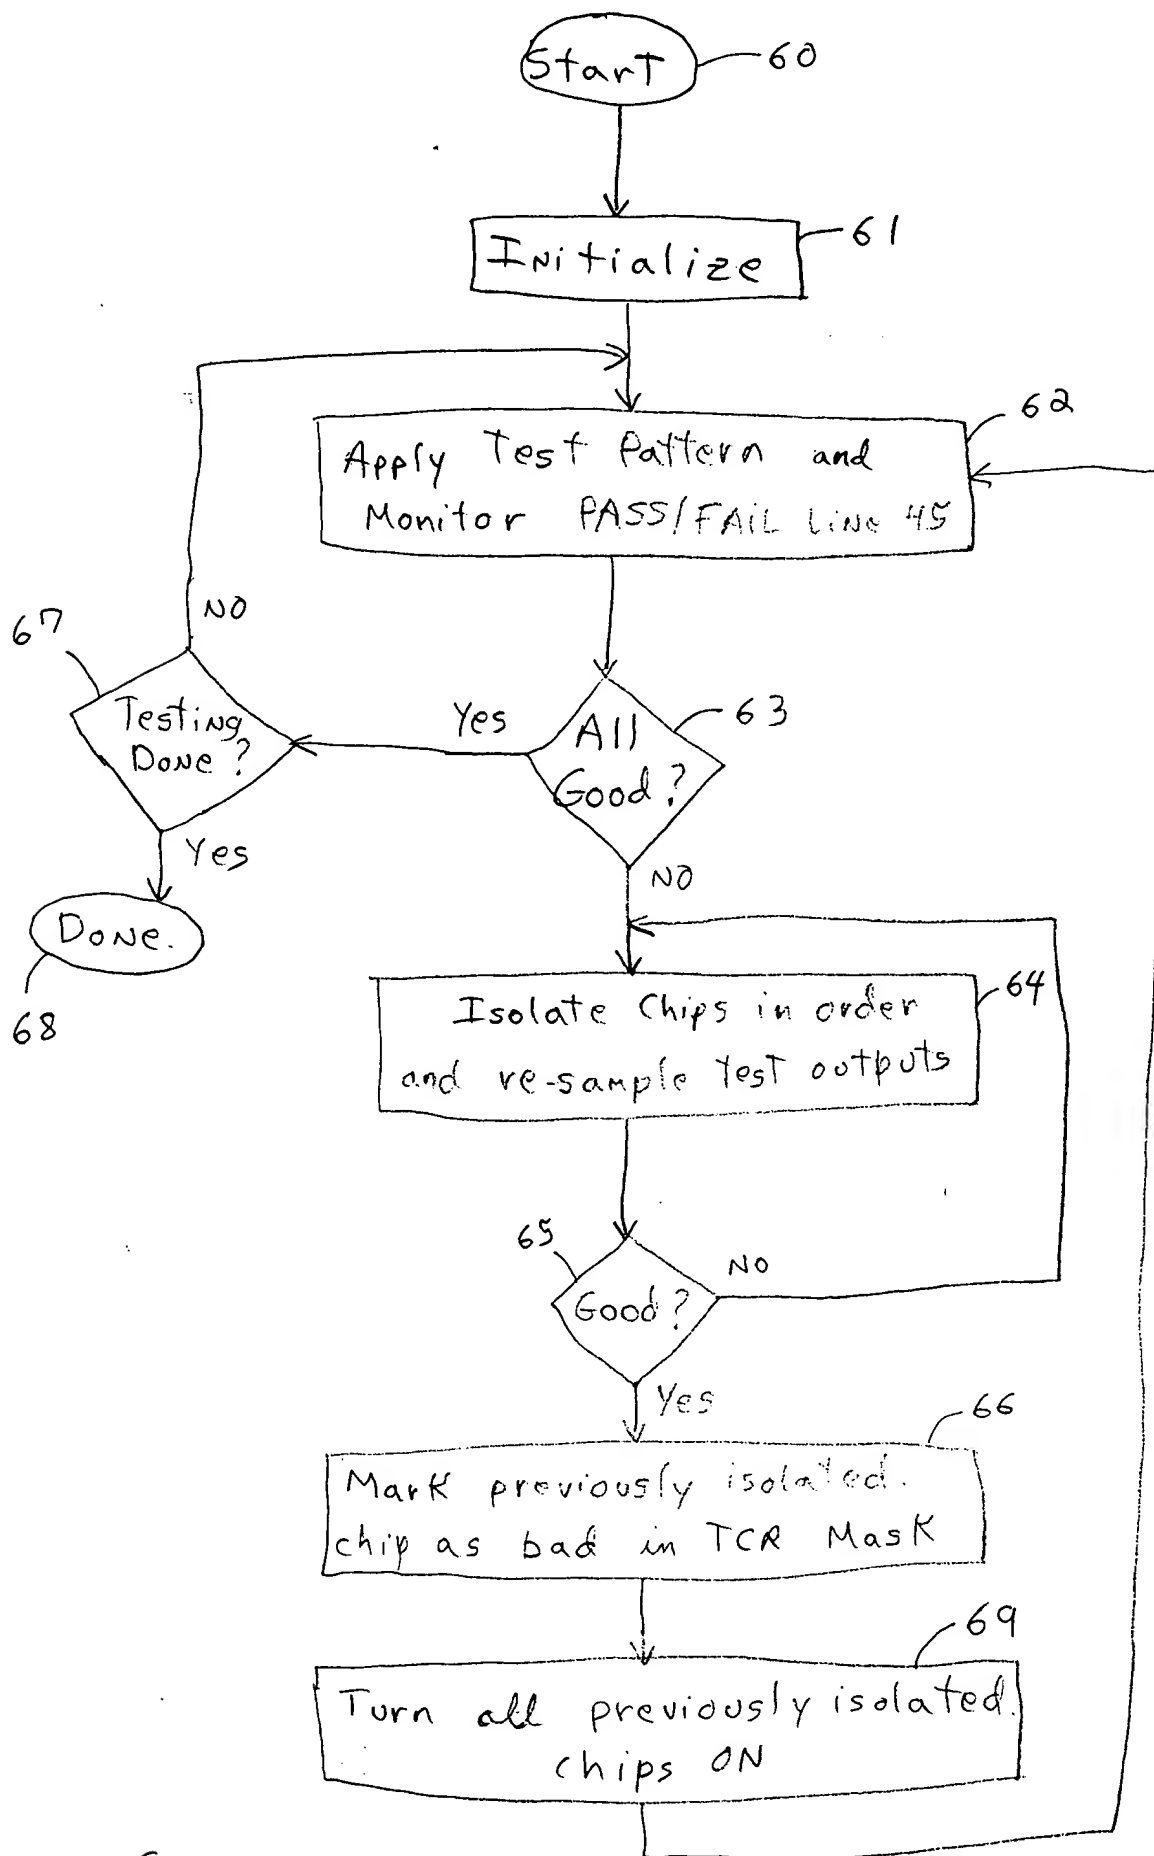 Start
60
Initialize
61
62
Apply Test Pattern and
Monitor PASS/FAIL Line 45
NO
67
Testing
Done?
Yes
All
Good?
63
Yes
NO
Done.
68
Isolate Chips in order
and re-sample Test outputs
64
65
Good?
NO
Yes
66
Mark previously isolated.
chip as bad in TCR Mask
69
Turn all previously isolated.
chips ON